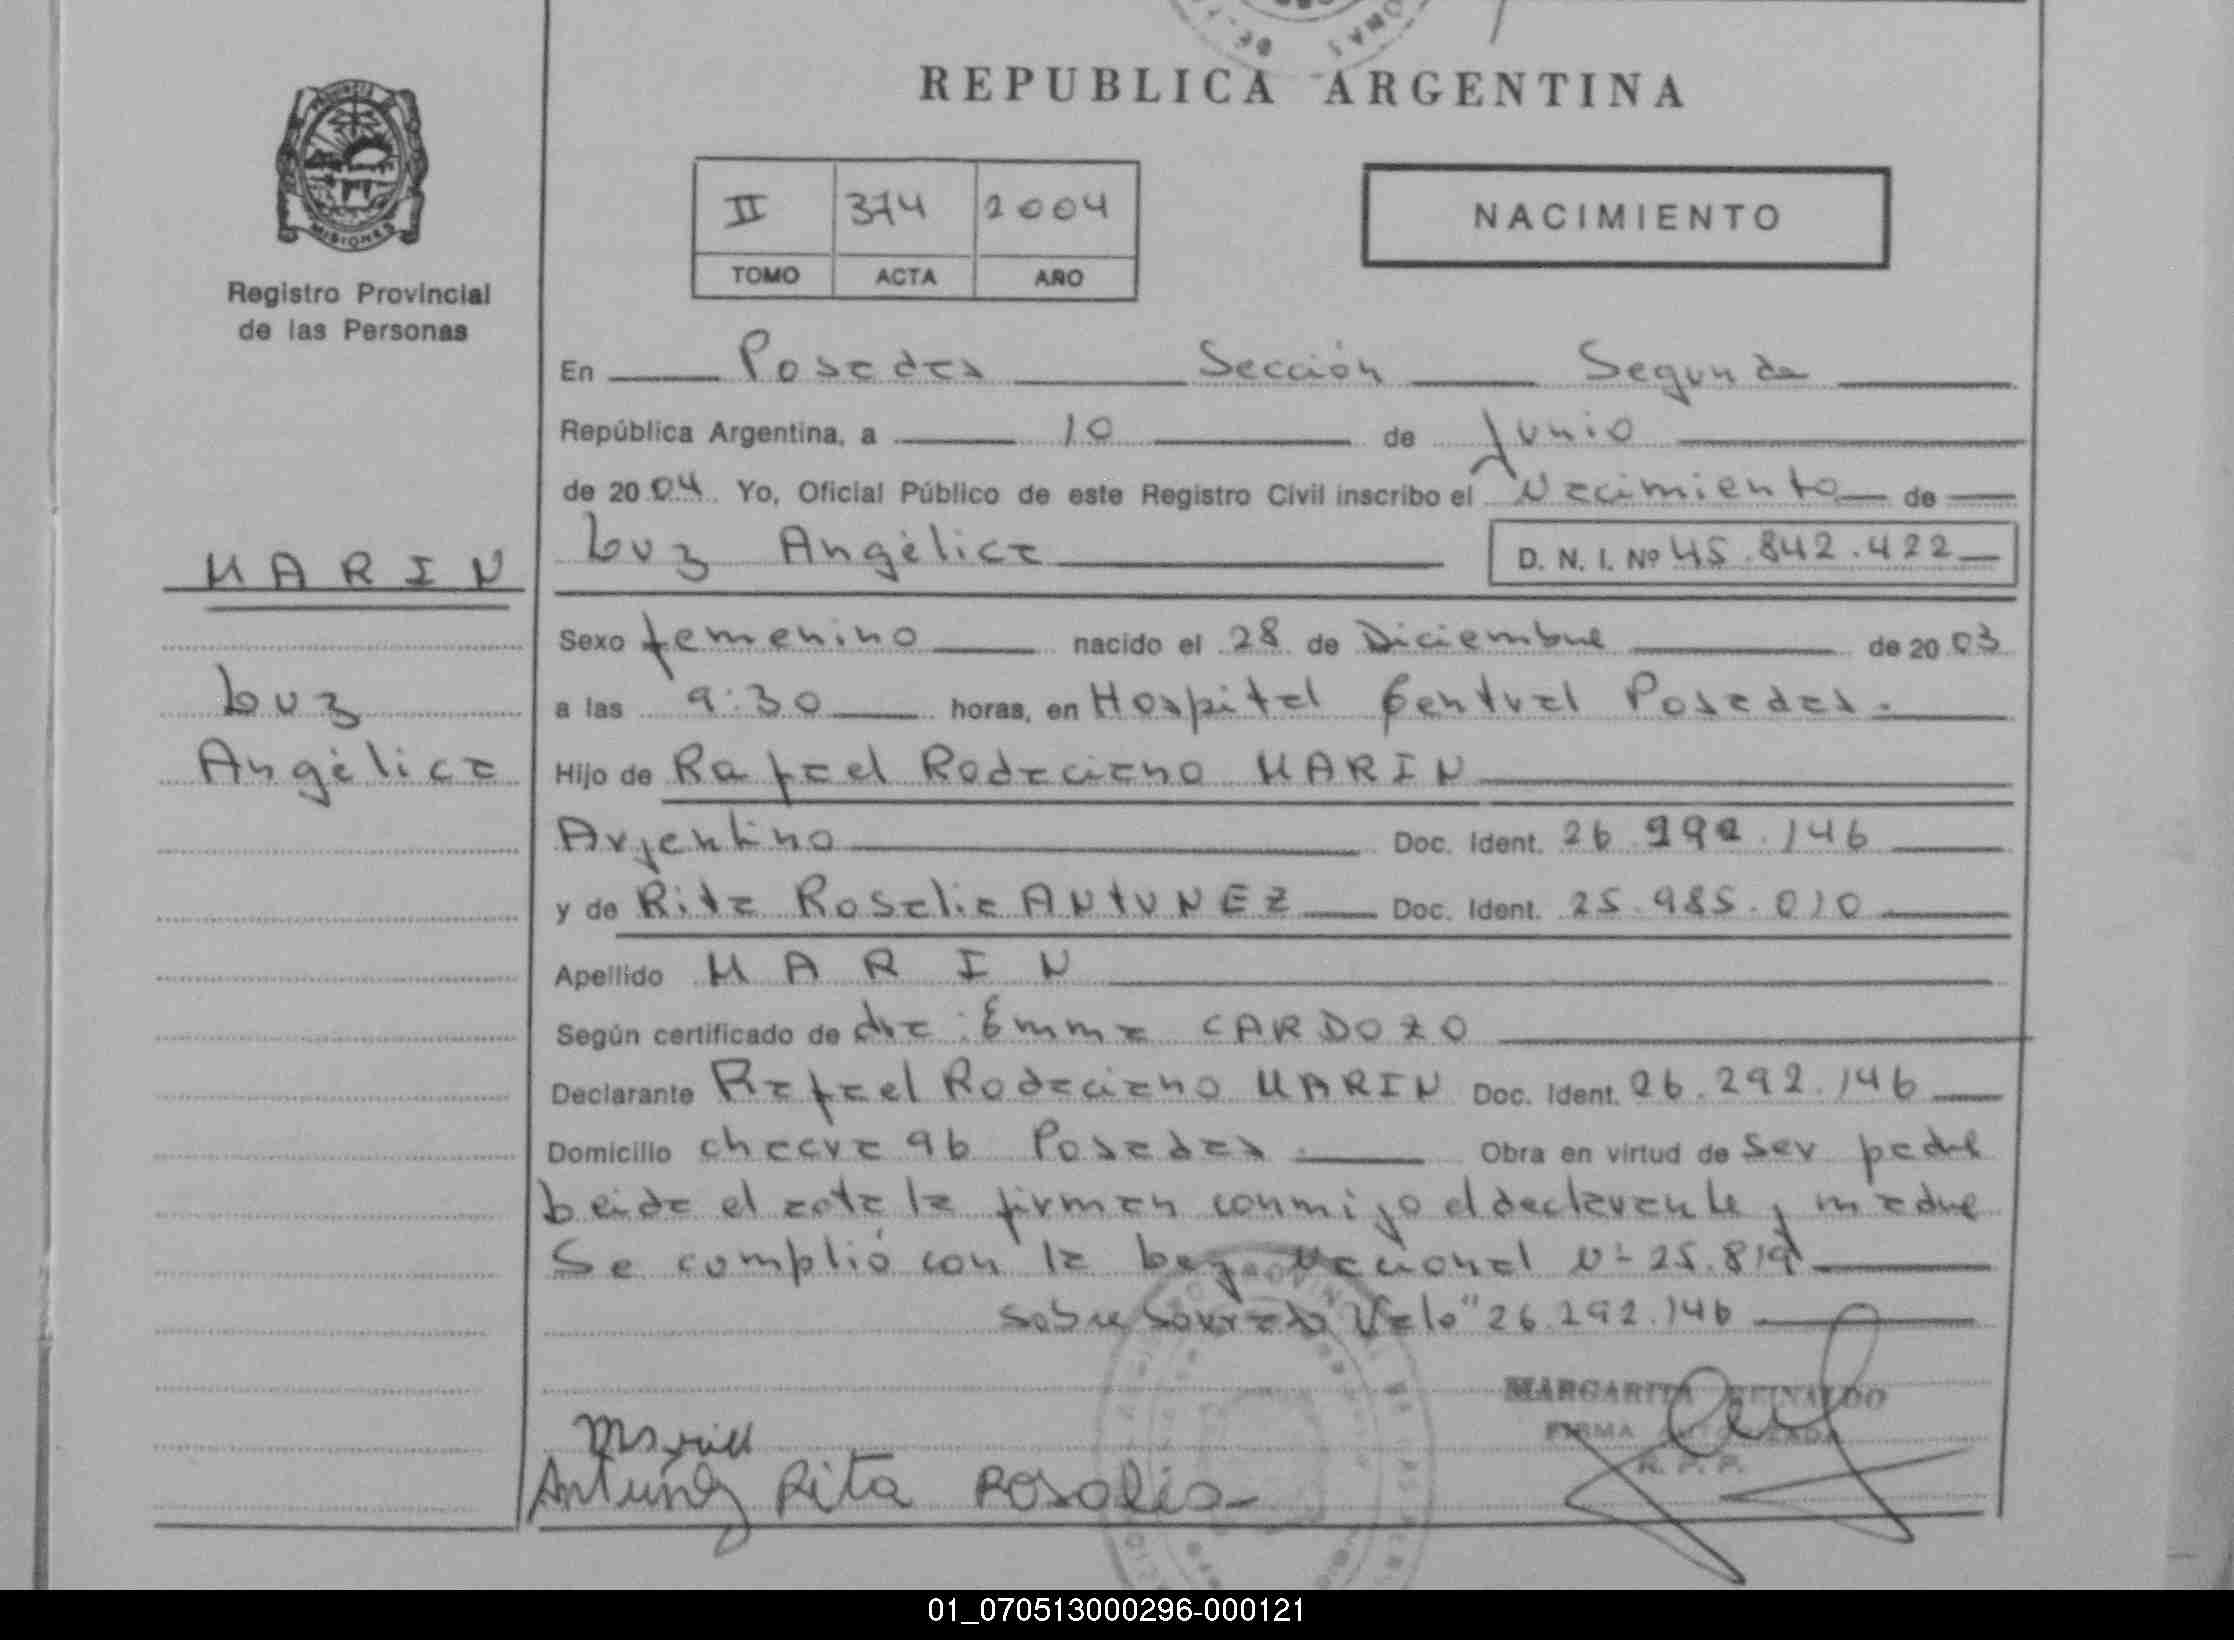 REPUBLICA ARGENTINA
MISIONES
Registro Provincial
de las Personas
II 374 2004
TOMO ACTA AÑO
NACIMIENTO
En Posadas Sección Segunda
República Argentina, a 10 de Junio
de 2004 Yo, Oficial Público de este Registro Civil inscribo el Nacimiento de
Luz Angélica D. N. I. Nº 45.842.422
MARIN
Luz
Angélica
Sexo femenino nacido el 28 de Diciembre de 2003
a las 9:30 horas, en Hospital Central Posadas.
Hijo de Rafael Rodaciano MARIN
Argentino Doc. Ident. 26.292.146
y de Rita Rosalia ANTUNEZ Doc. Ident. 25.985.010
Apellido MARIN
Según certificado de dra: Emma CARDOZO
Declarante Rafael Rodaciano MARIN Doc. Ident. 26.292.146
Domicilio chacra 96 Posadas Obra en virtud de ser padre
Leida el acta la firman conmigo el declarante y madre
Se cumplió con la Ley Nacional Nº 25.819
sobre borrado "Vale" 26.292.146
MARGARITA REINALDO
FIRMA AUTORIZADA
R. P. P.
Antunez Rita Rosalia
01_070513000296-000121